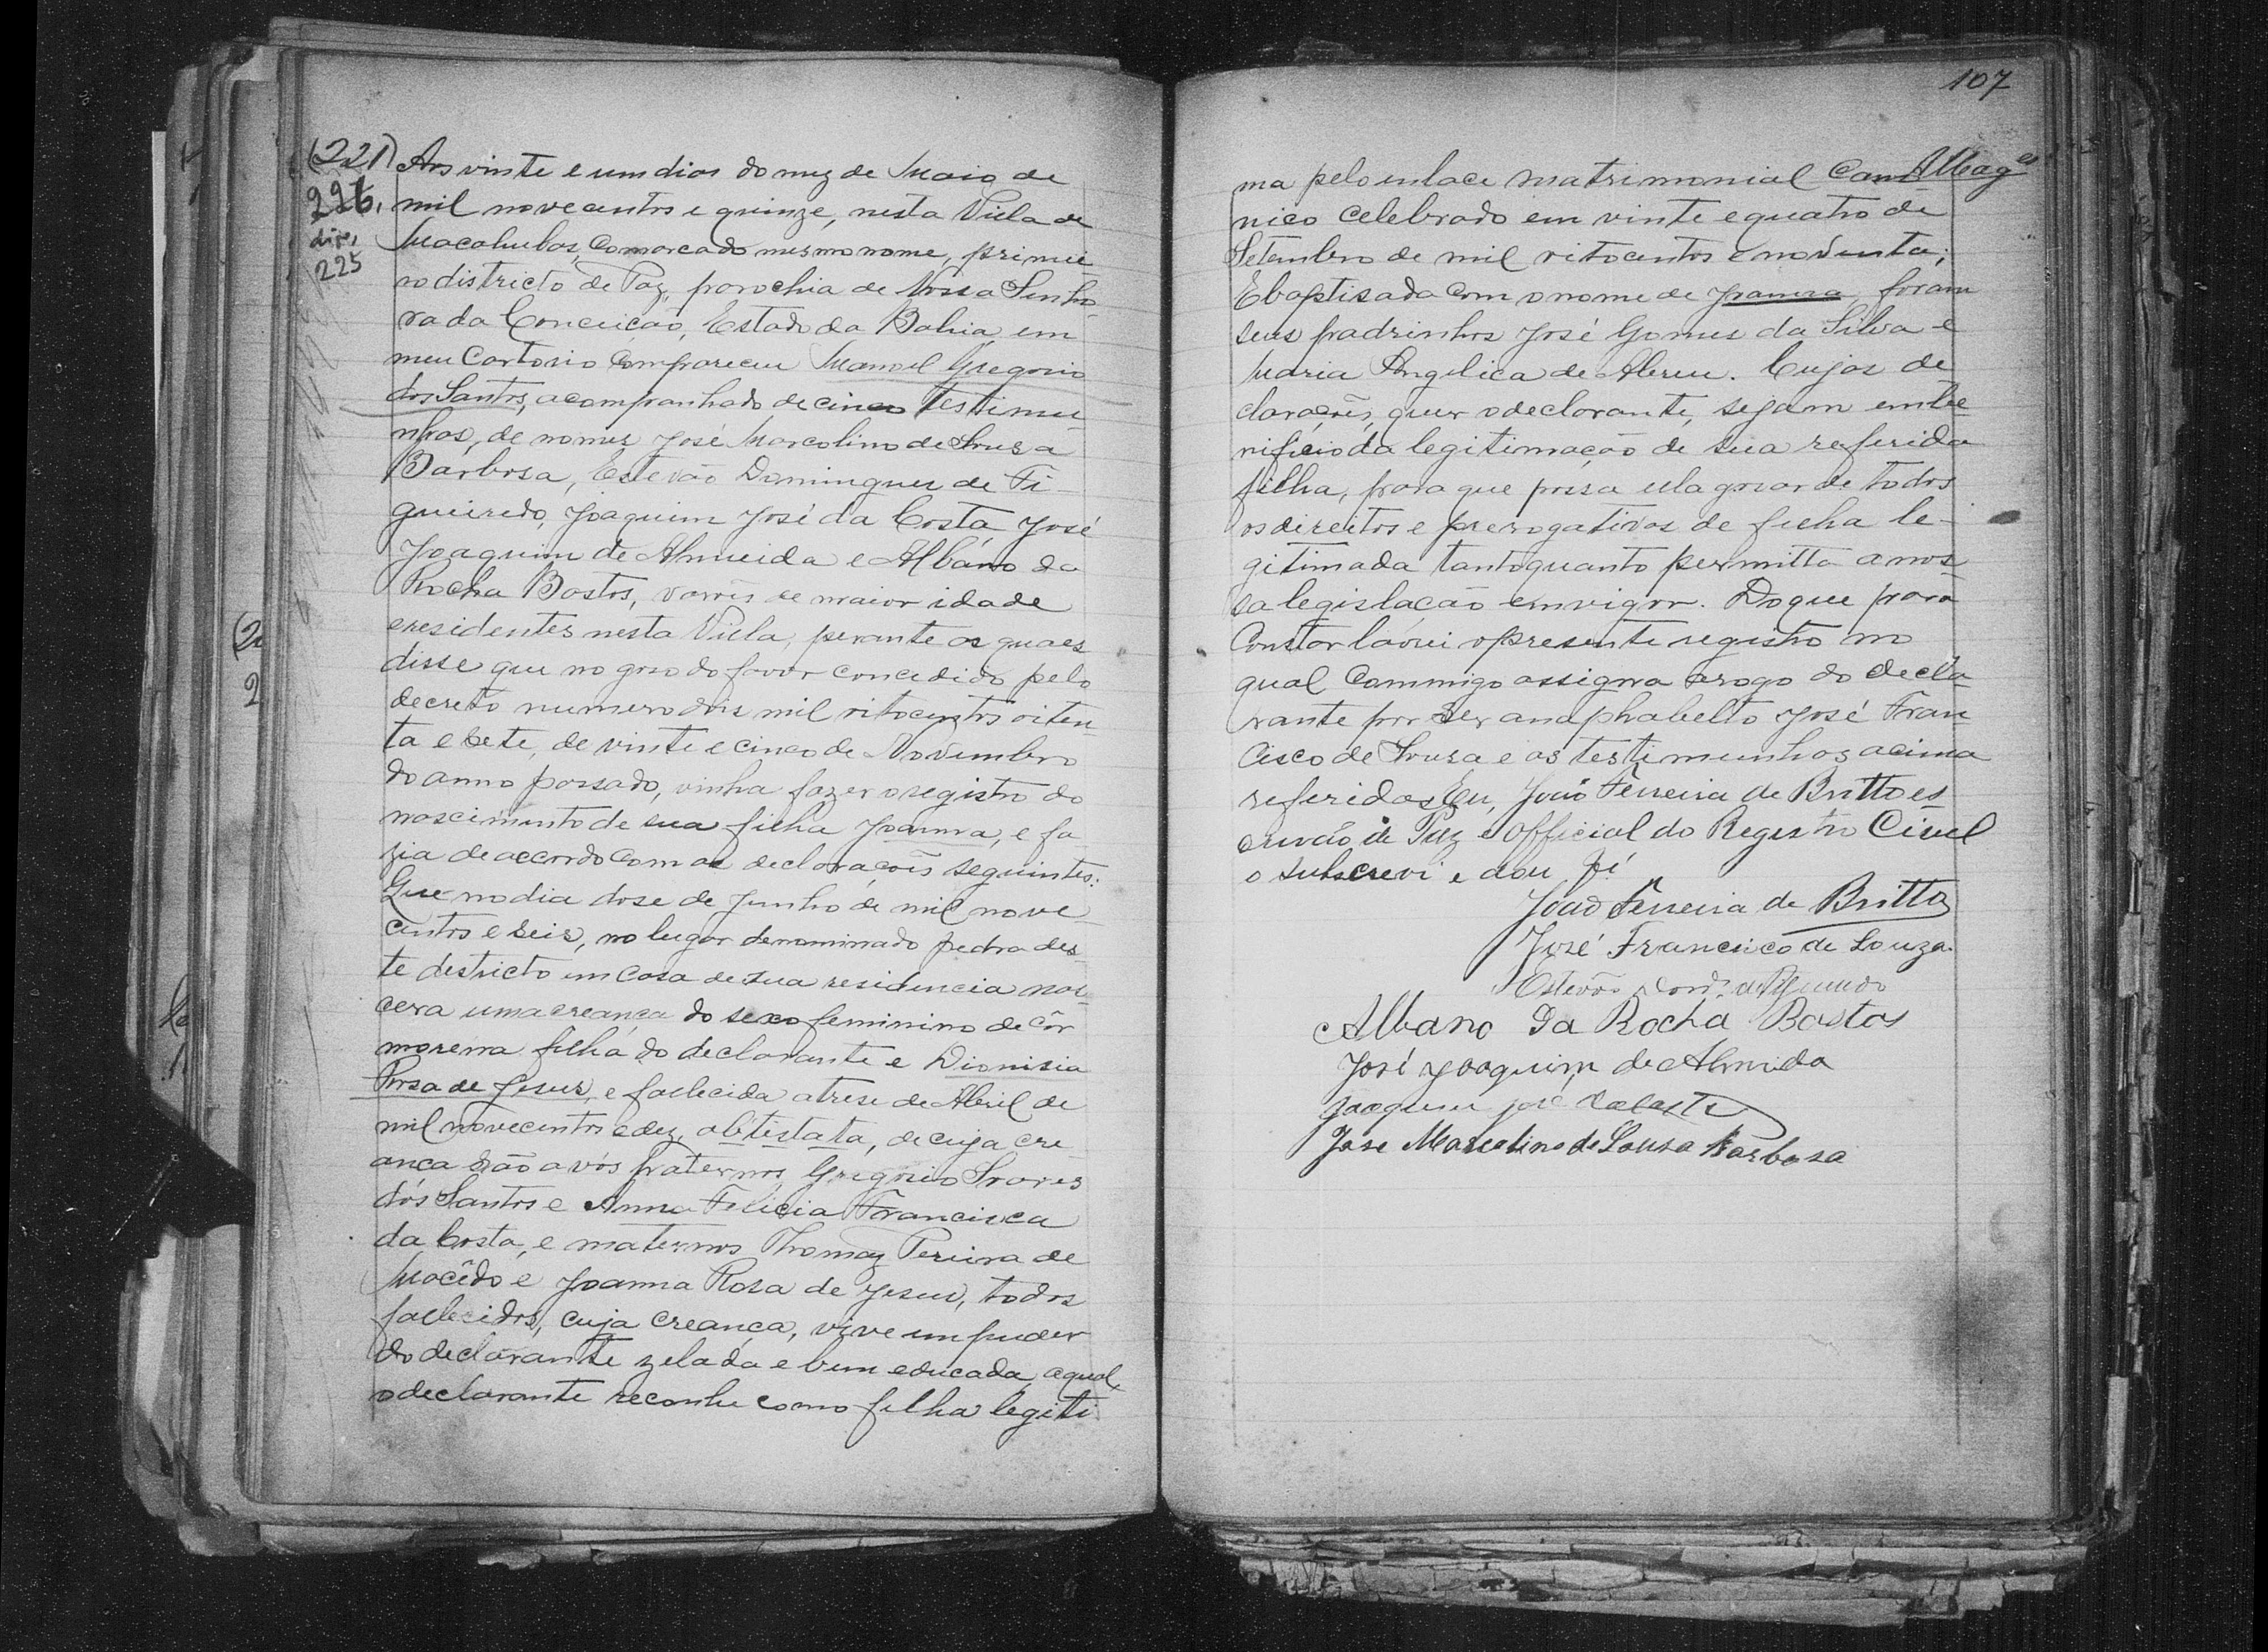 (221)
226,
dir,
225
Aos vinte e um dias do mez de Maio de
mil novecentos e quinze, nesta Villa de
Macahubas, Comarca do mesmo nome, primei
ro districto de Paz, parochia de Nossa Senho
ra da Conceição, Estado da Bahia, em
meu Cartorio Compareceu Manoel Gregorio
dos Santos, acompanhado de cinco testimu
nhas, de nomes José Marcolino de Sousa
Barbosa, Estevão Domingues de Fi-
gueiredo, Joaquim José da Costa, José
Joaquim de Almeida e Albano da
Rocha Bastos, varões de maior idade
e residentes nesta Villa, perante as quaes
disse que no goso do favor concedido pelo
decreto numero dois mil oitocentos oiten-
ta e sete, de vinte e cinco de Novembro
do anno passado, vinha fazer o registro do
nascimento de sua filha Joanna, e fa
zia de accordo com as declarações seguintes:
Que no dia dose de Junho de mil nove
centos e seis, no lugar denominado pedra des-
te destricto em casa de sua residencia nas-
cera uma creança do sexo feminino de côr
morena filha do declarante e Dionisia
Rosa de Jesus, e fallecida a trese de Abril de
mil novecentos e dez, abtistata, de cuja cre
ança são avós paternos, Gregorio Soares
dos Santos e Anna Felicia Francisca
da Costa, e maternos Thomaz Pereira de
Macêdo e Joanna Rosa de Jesus, todos
fallecidos, cuja creança, vive em puder
do declarante zelada e bem educada, aqual,
o declarante reconhe como filha legiti
107
ma pelo enlace matrimonial Cam
nico celebrado em vinte e quatro de
Setembro de mil oitocentos e noventa;
E baptisada com o nome de Joanna, foram
seus padrinhos José Gomes da Silva e
Maria Angelica de Abreu. Cujas de
clarações, quer o declarante, sejam em be
nificio da legitimação de sua referida
filha, para que possa ella gosar de todos
os direitos e prerogativas de filha le-
gitimada tanto quanto permitta a nos-
sa legislação em vigor. Do que para
Constar lavrei o presente registro no
qual Commigo assigna arogo do decla-
rante por ser anaphabelto José Fran
cisco de Sousa e as testimunhas acima
referidas Eu, João Ferreira de Britto es
crivão de Paz e Official do Registro Civel
o subscrevi e dou fé
João Ferreira de Britto
José Francisco de Souza.
Estevão
Albano Da Rocha Bastos
José Joaquim de Almeida
Joaquim José
Jose Marcolino de Sousa Barbosa